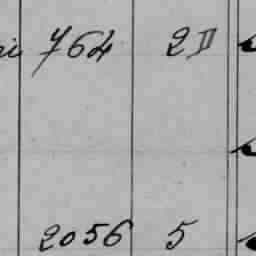 764 2 II
2056 5